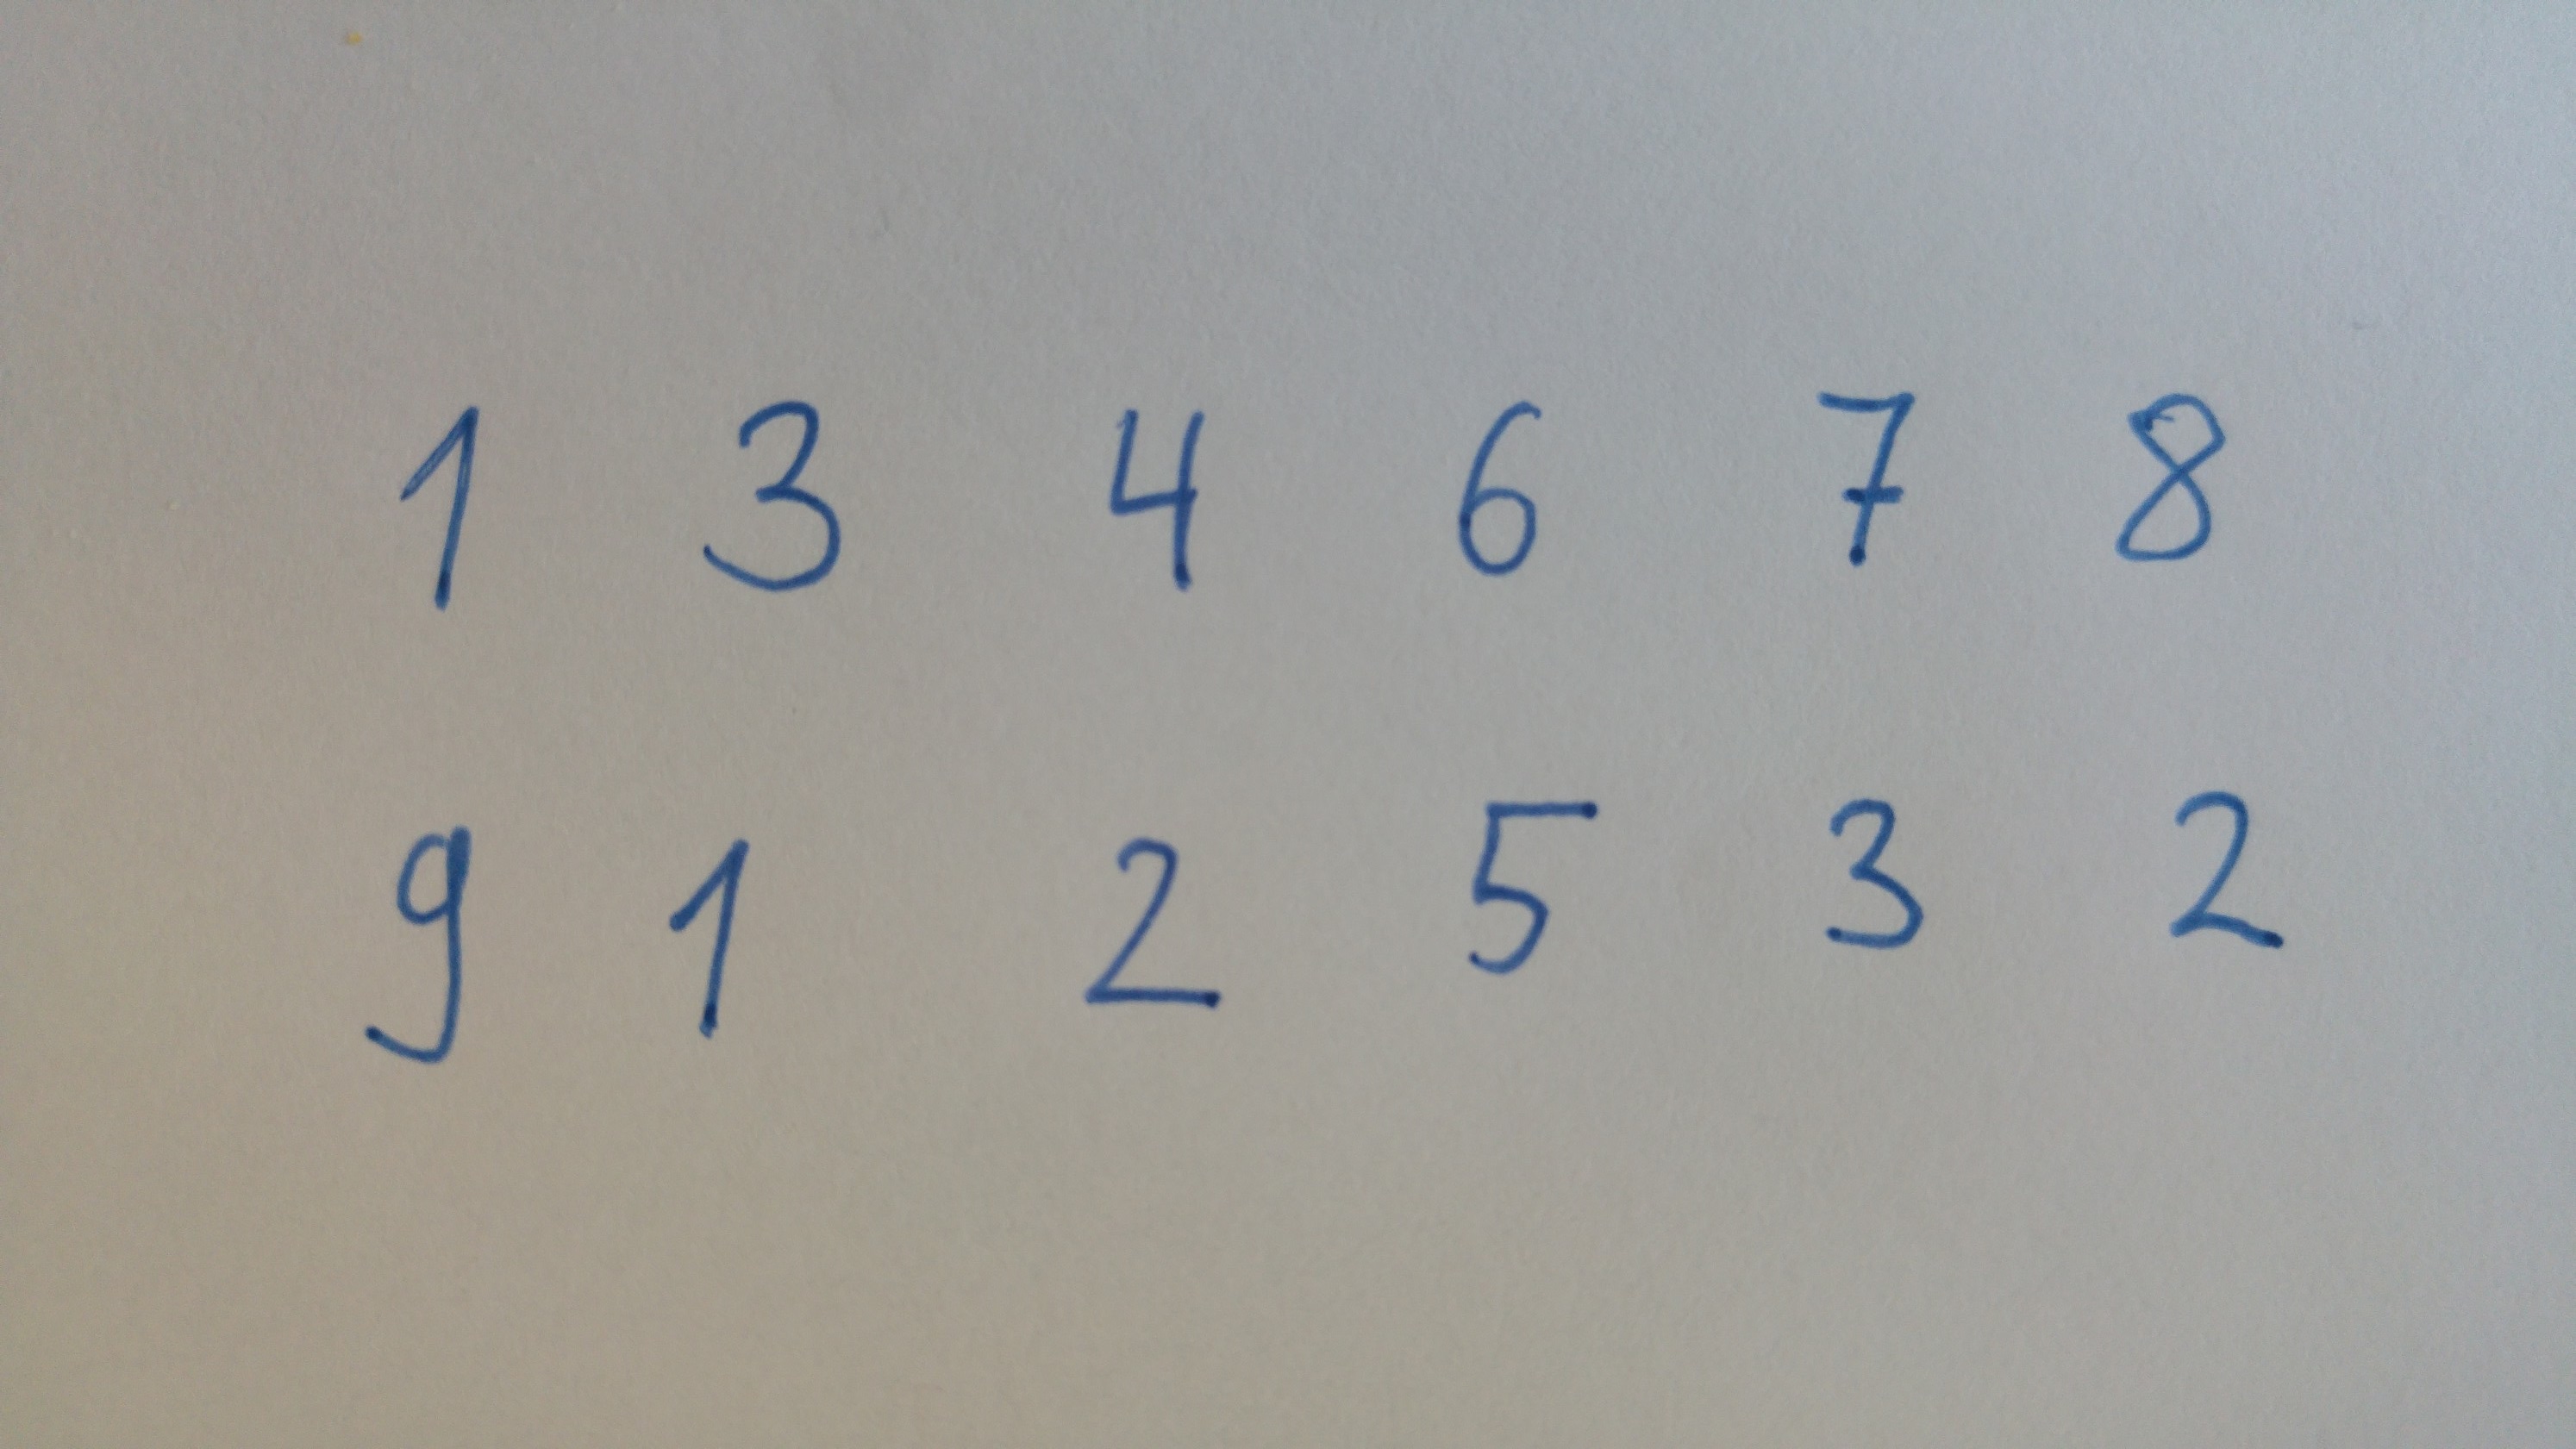 1 3 4 6 7 8
9 1 2 5 3 2